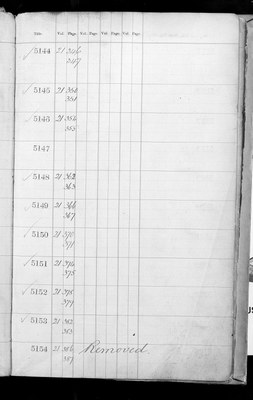 Title. Vol. Page. Vol. Page. Vol. Page. Vol. Page. Vol. Page.
5144 21 346
347
5145 21 350
351
5146 21 354
355
5147
5148 21 362
363
5149 21 366
367
5150 21 370
371
5151 21 374
375
5152 21 378
379
5153 21 382
383
5154 21 386 Removed
387